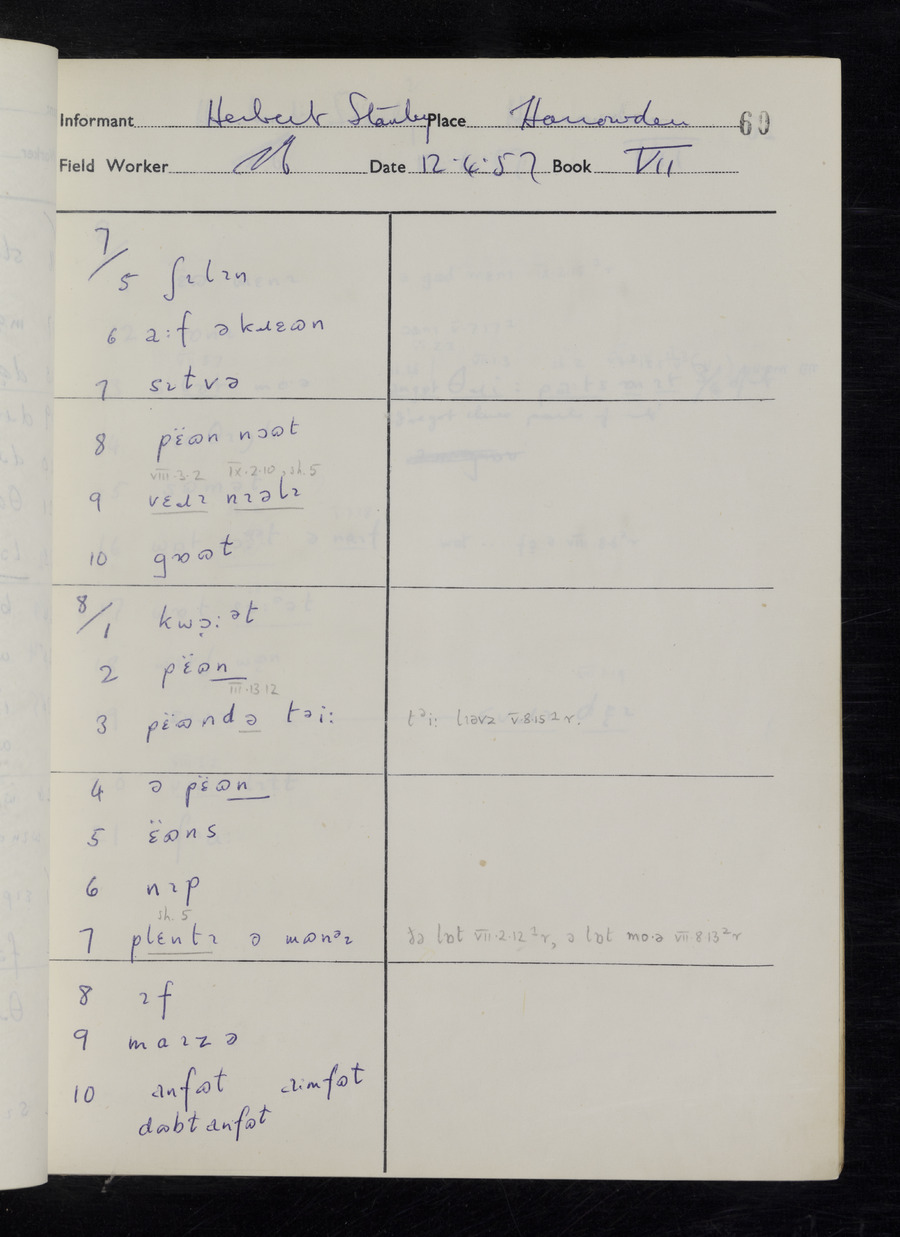 Informant Herbert Stanley Place Harrowden 60
Field Worker Date 12.4.57 Book VII
7/5 ʃɪlɪn
6 a:f ə kɹɛɷn
7 sɪtvə
8 pɛ̈ɷn nɔɷt
VIII.3.2 IX.2.10, sh.5
9 vɛɹɪ nɪəlɪ
10 gɒɷt
8/1 kwɔ̣:ət
2 pɛ̈ɷn
III.13.12
3 pɛ̈ɷndə tᵊi: tᵊi: lɪəvz V.8.15²r.
4 ə pɛ̈ɷn
5 ɛ̈ɷns
6 nɪp
sh. 5
7 plɛntɪ ə mɷnᵊɪ ðə lɒt VII.2.12²r, ə lɒt mo.ə VII.8.13²r
8 ɪf
9 maɪzə
10 ɑnfɷt ɑimfɷt
dɷbtɑnfɷt